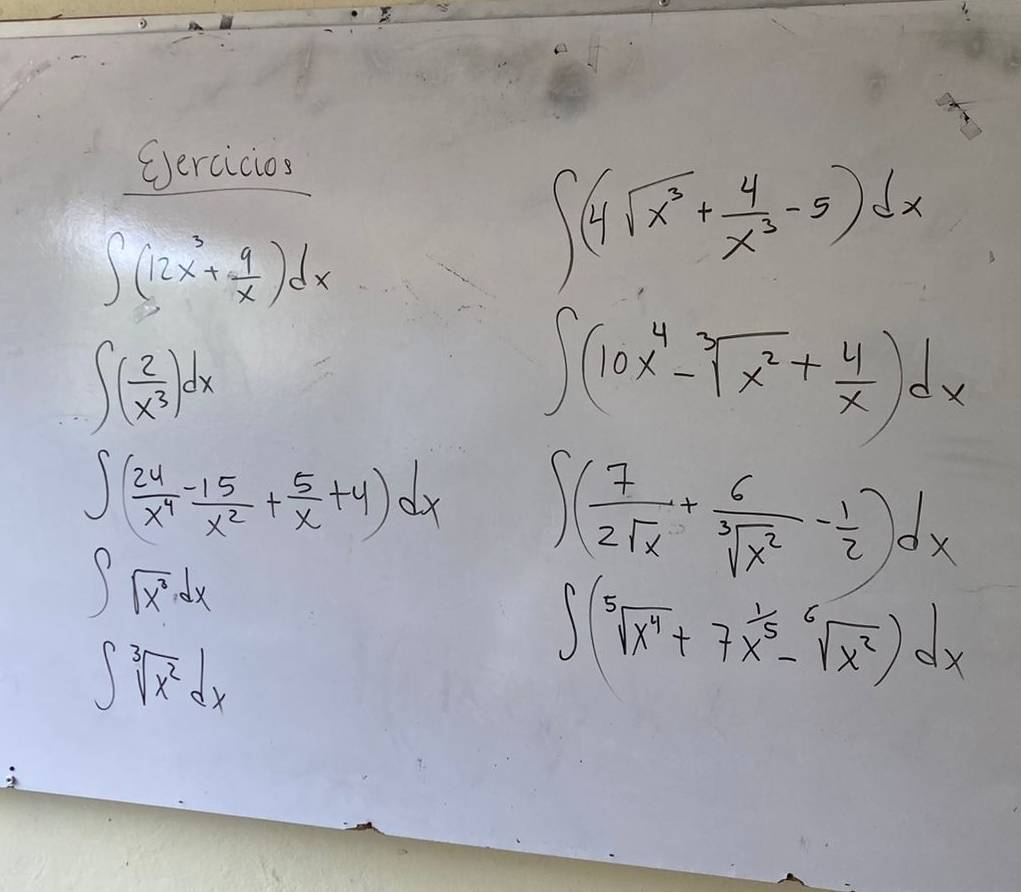 Ejercicios
∫(12x³ + 9/x)dx
∫(2/x³)dx
∫(24/x⁴ - 15/x² + 5/x + 4)dx
∫√x³ dx
∫∛x² dx
∫(4√x³ + 4/x³ - 5)dx
∫(10x⁴ - ∛x² + 4/x)dx
∫(7/2√x + 6/∛x² - 1/2)dx
∫(⁵√x⁴ + 7x^(1/5) - ⁶√x²)dx